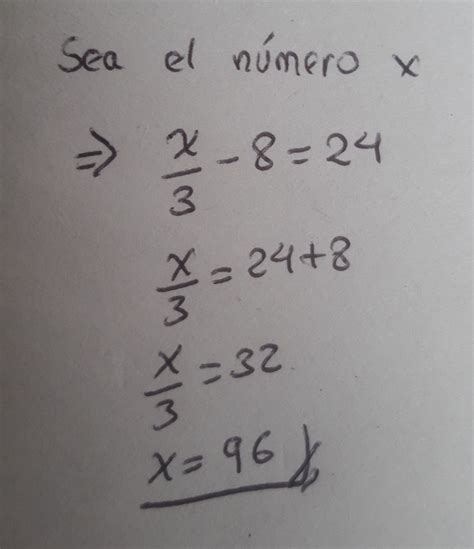 Sea el número x
⇒ x/3 - 8 = 24
x/3 = 24+8
x/3 = 32
x = 96